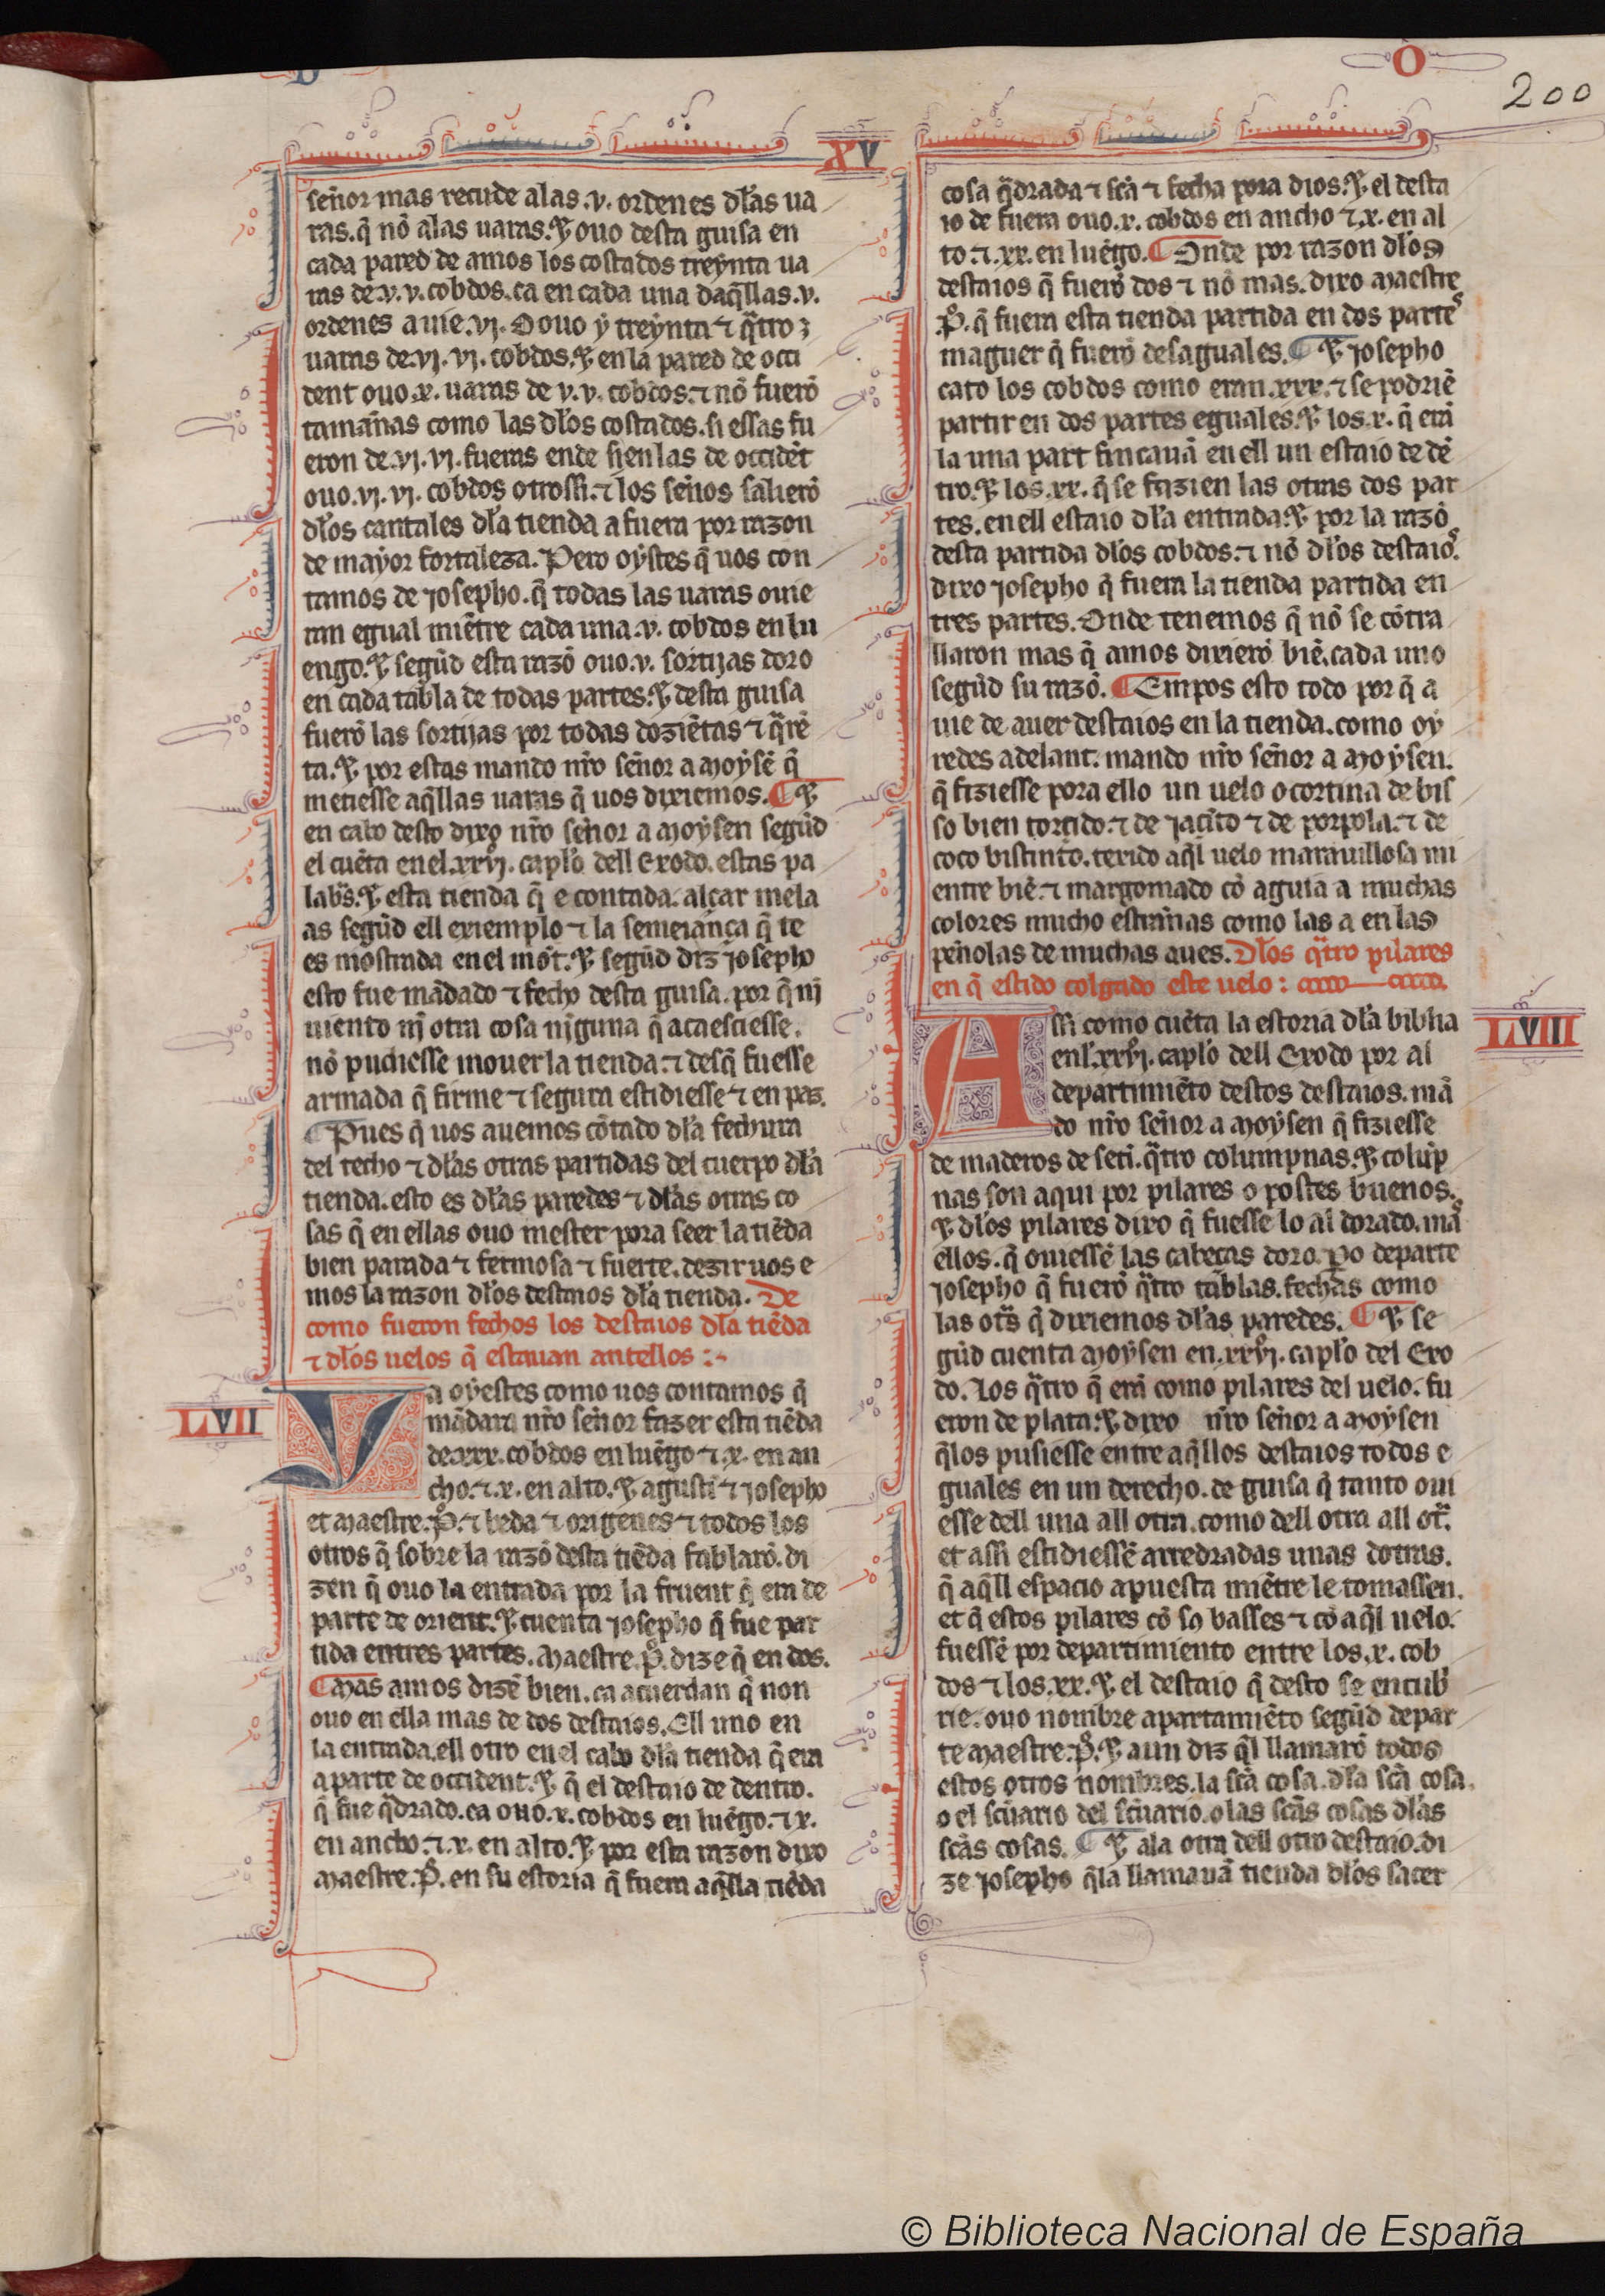 O
200
XV
señor mas recude alas .v. ordenes dłas ua
ras. q̃ nõ alas uaras. ⁊ ouo desta guisa en
cada pared de amos los costados treynta ua
ras de .v. v. cobdos. ca en cada una daq̃llas .v.
ordenes auie .vj. O ouo ỹ treynta ⁊ q̃tro
uaras de .vj. vj. cobdos. ⁊ en la pared de occi
dent ouo .x. uaras de v. v. cobdos. ⁊ nõ fuerõ
tamañas como las dłos costados. si essas fu
eron de .vj. vj. fueras ende si en las de occidẽt
ouo .vj. vj. cobdos otrossi. ⁊ los seños salierõ
dłos cantales dła tienda a fuera por razon
de mayor fortaleza. Pero oystes q̃ uos con
tamos de josepho. q̃ todas las uaras ouie
ran egual miẽtre cada una .v. cobdos en lu
engo. ⁊ segũd esta razõ ouo .v. sortijas doro
en cada tabla de todas partes. ⁊ desta guisa
fuerõ las sortijas por todas doziẽtas ⁊ q̃rẽ
ta. ⁊ por estas mando nr̃o señor a moysẽ q̃
metiesse aq̃llas uaras q̃ uos dixiemos. ⁊
en cabo desto dixo nr̃o señor a moysen segũd
el cuẽta en el .xxvj. capło dell Exodo. estas pa
labr̃s. ⁊ esta tienda q̃ e contada. alçar mela
as segũd ell exiemplo ⁊ la semeiança q̃ te
es mostrada en el mõt. ⁊ segũd diz josepho
esto fue mãdado ⁊ fecho desta guisa. por q̃ nj
uiento nj otra cosa njguna q̃ acaesciesse.
nõ pudiesse mouer la tienda. ⁊ desq̃ fuesse
armada q̃ firme ⁊ segura estidiesse ⁊ en paz.
Pues q̃ uos auemos cõtado dła fechura
del techo ⁊ dłas otras partidas del cuerpo dła
tienda. esto es dłas paredes ⁊ dłas otras co
sas q̃ en ellas ouo mester pora seer la tiẽda
bien parada ⁊ fermosa ⁊ fuerte. dezir uos e
mos la razon dłos destaios dła tienda. De
como fueron fechos los destaios dła tiẽda
⁊ dłos uelos q̃ estauan antellos :-
LVII
Va oyestes como uos contamos q̃
mãdara nr̃o señor fazer esta tiẽda
de .xxx. cobdos en luẽgo ⁊ .x. en an
cho. ⁊ .x. en alto. ⁊ agustĩ ⁊ josepho
et maestre .P̃. ⁊ beda ⁊ origenes ⁊ todos los
otros q̃ sobre la razõ desta tiẽda fablarõ. di
zen q̃ ouo la entrada por la fruent q̃ era de
parte de orient. ⁊ cuenta josepho q̃ fue par
tida en tres partes. Maestre .P̃. dize q̃ en dos.
Mas amos dizẽ bien. ca acuerdan q̃ non
ouo en ella mas de dos destaios. Ell uno en
la entrada. ell otro en el cabo dła tienda q̃ era
a parte de occident. ⁊ q̃ el destaio de dentro.
q̃ fue q̃drado. ca ouo .x. cobdos en luẽgo. ⁊ x.
en ancho. ⁊ .x. en alto. ⁊ por esta razon dixo
maestre .P̃. en su estoria q̃ fuera aq̃lla tiẽda
cosa q̃drada ⁊ scã ⁊ fecha pora dios. ⁊ el desta
io de fuera ouo .x. cobdos en ancho ⁊ .x. en al
to. ⁊ .xx. en luẽgo. Onde por razon dłos
destaios q̃ fuerõ dos ⁊ nõ mas. dixo maestre
P̃. q̃ fuera esta tienda partida en dos partes
maguer q̃ fuerõ desaguales. ⁊ josepho
cato los cobdos como eran .xxx. ⁊ se podriẽ
partir en dos partes eguales. ⁊ los .x. q̃ erã
la una part fincauã en ell un estaio de dẽ
tro. ⁊ los .xx. q̃ se fazien las otras dos par
tes. en ell estaio dła entrada. ⁊ por la razõ
desta partida dłos cobdos. ⁊ nõ dłos destaios.
dixo josepho q̃ fuera la tienda partida en
tres partes. Onde tenemos q̃ nõ se cõtra
llaron mas q̃ amos dixierõ biẽ. cada uno
segũd su razõ. Empos esto todo por q̃ a
uie de auer destaios en la tienda. como oy
redes adelant. mando nr̃o señor a moysen.
q̃ fiziesse pora ello un uelo o cortina de bis
so bien torcido. ⁊ de jacĩto ⁊ de porpola. ⁊ de
coco bistinto. texido aq̃l uelo marauillosa mi
entre biẽ. ⁊ margomado cõ aguia a muchas
colores mucho estrañas como las a en las
peñolas de muchas aues. Dłos q̃tro pilares
en q̃ estido colgado este uelo :
LVIII
Assi como cuẽta la estoria dła biblia
enł .xxvj. capło dell Exodo por al
departimiẽto destos destaios. mã
do nr̃o señor a moysen q̃ fiziesse
de maderos de seti. q̃tro columpnas. ⁊ colũp
nas son aqui por pilares o postes buenos.
⁊ dłos pilares dixo q̃ fuesse lo al dorado. mas
ellos. q̃ ouiessẽ las cabeças doro. Po departe
josepho q̃ fuerõ q̃tro tablas. fechas como
las otr̃s q̃ dixiemos dłas paredes. ⁊ se
gũd cuenta moysen en .xxvj. capło del Exo
do. Los q̃tro q̃ erã como pilares del uelo. fu
eron de plata. ⁊ dixo nr̃o señor a moysen
q̃los pusiesse entre aq̃llos destaios todos e
guales en un derecho. de guisa q̃ tanto oui
esse dell una all otra. como dell otra all otr̃.
et assi estidiessẽ arredradas unas dotras.
q̃ aq̃ll espacio apuesta miẽtre le tomassen.
et q̃ estos pilares cõ so basses ⁊ cõ aq̃l uelo.
fuessẽ por departimiento entre los .x. cob
dos ⁊ los .xx. ⁊ el destaio q̃ desto se encub
rie. ouo nombre apartamiẽto segũd depar
te maestre .P̃. ⁊ aun diz q̃l llamarõ todos
estos otros nombres. la scã cosa. dła scã cosa.
o el scũario del scũario. o las scãs cosas dłas
scãs cosas. ⁊ ala otra dell otro destaio. di
ze josepho q̃la llamauã tienda dłos sacer
© Biblioteca Nacional de España